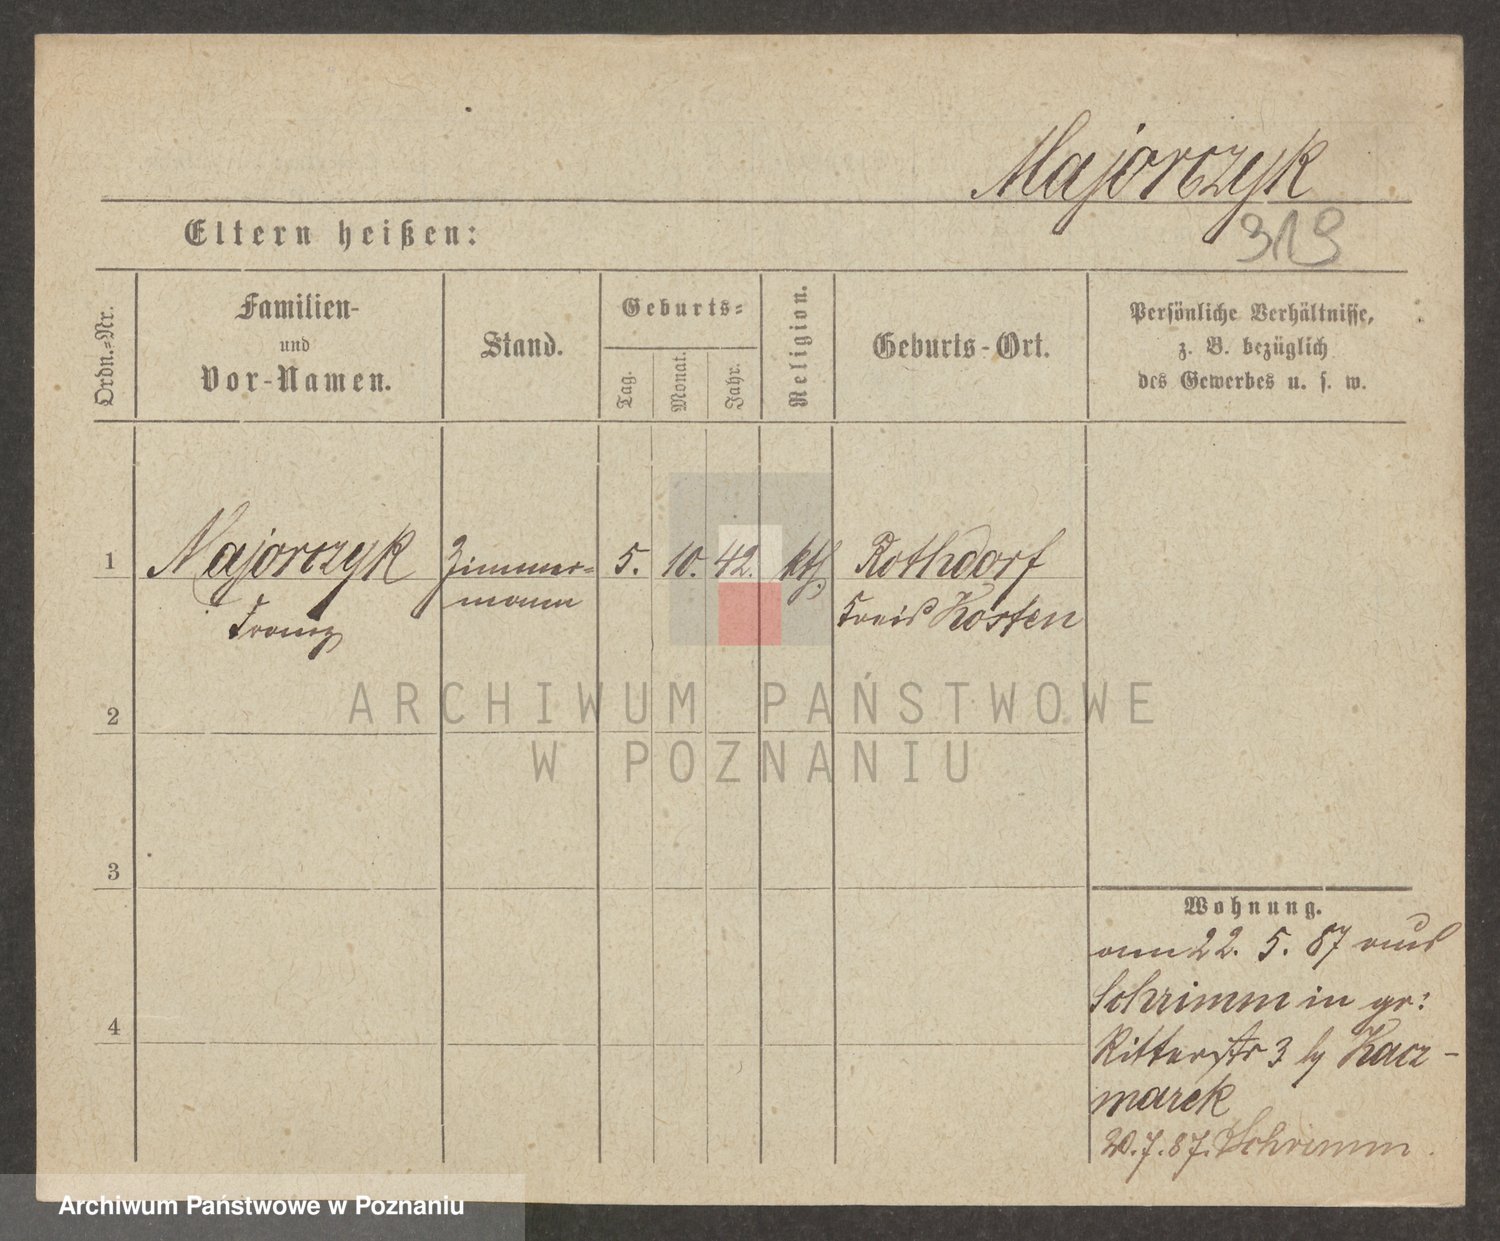 Majorczyk
319
Eltern heißen:
Ordn.-Nr.
Familien-
und
Vor-Namen.
Stand.
Geburts-
Tag.
Monat.
Jahr.
Religion.
Geburts-Ort.
Persönliche Verhältnisse,
z. B. bezüglich
des Gewerbes u. s. w.
1
Majorczyk
Franz
Zimmer-
mann
5.
10.
42.
kth.
Rothdorf
Kreis Kosten
2
3
4
Wohnung.
am 22. 5. 87 aus
Schrimm in gr:
Ritterstr 3 by Kacz-
marek
20.7.87. Schrimm.
ARCHIWUM PAŃSTWOWE
W POZNANIU
Archiwum Państwowe w Poznaniu